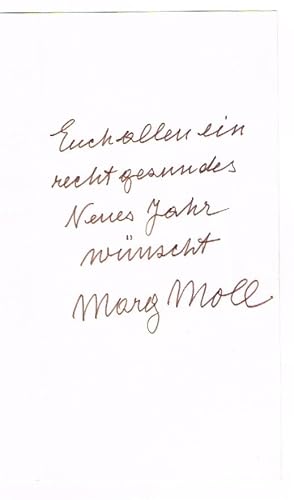 Euch allen ein
recht gesundes
Neues Jahr
wünscht
Marg Moll